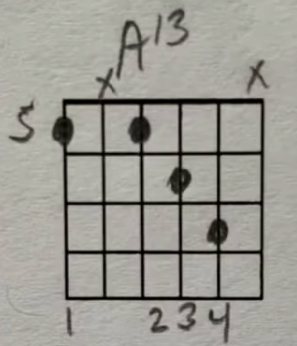 A13
x x
5
1 2 3 4